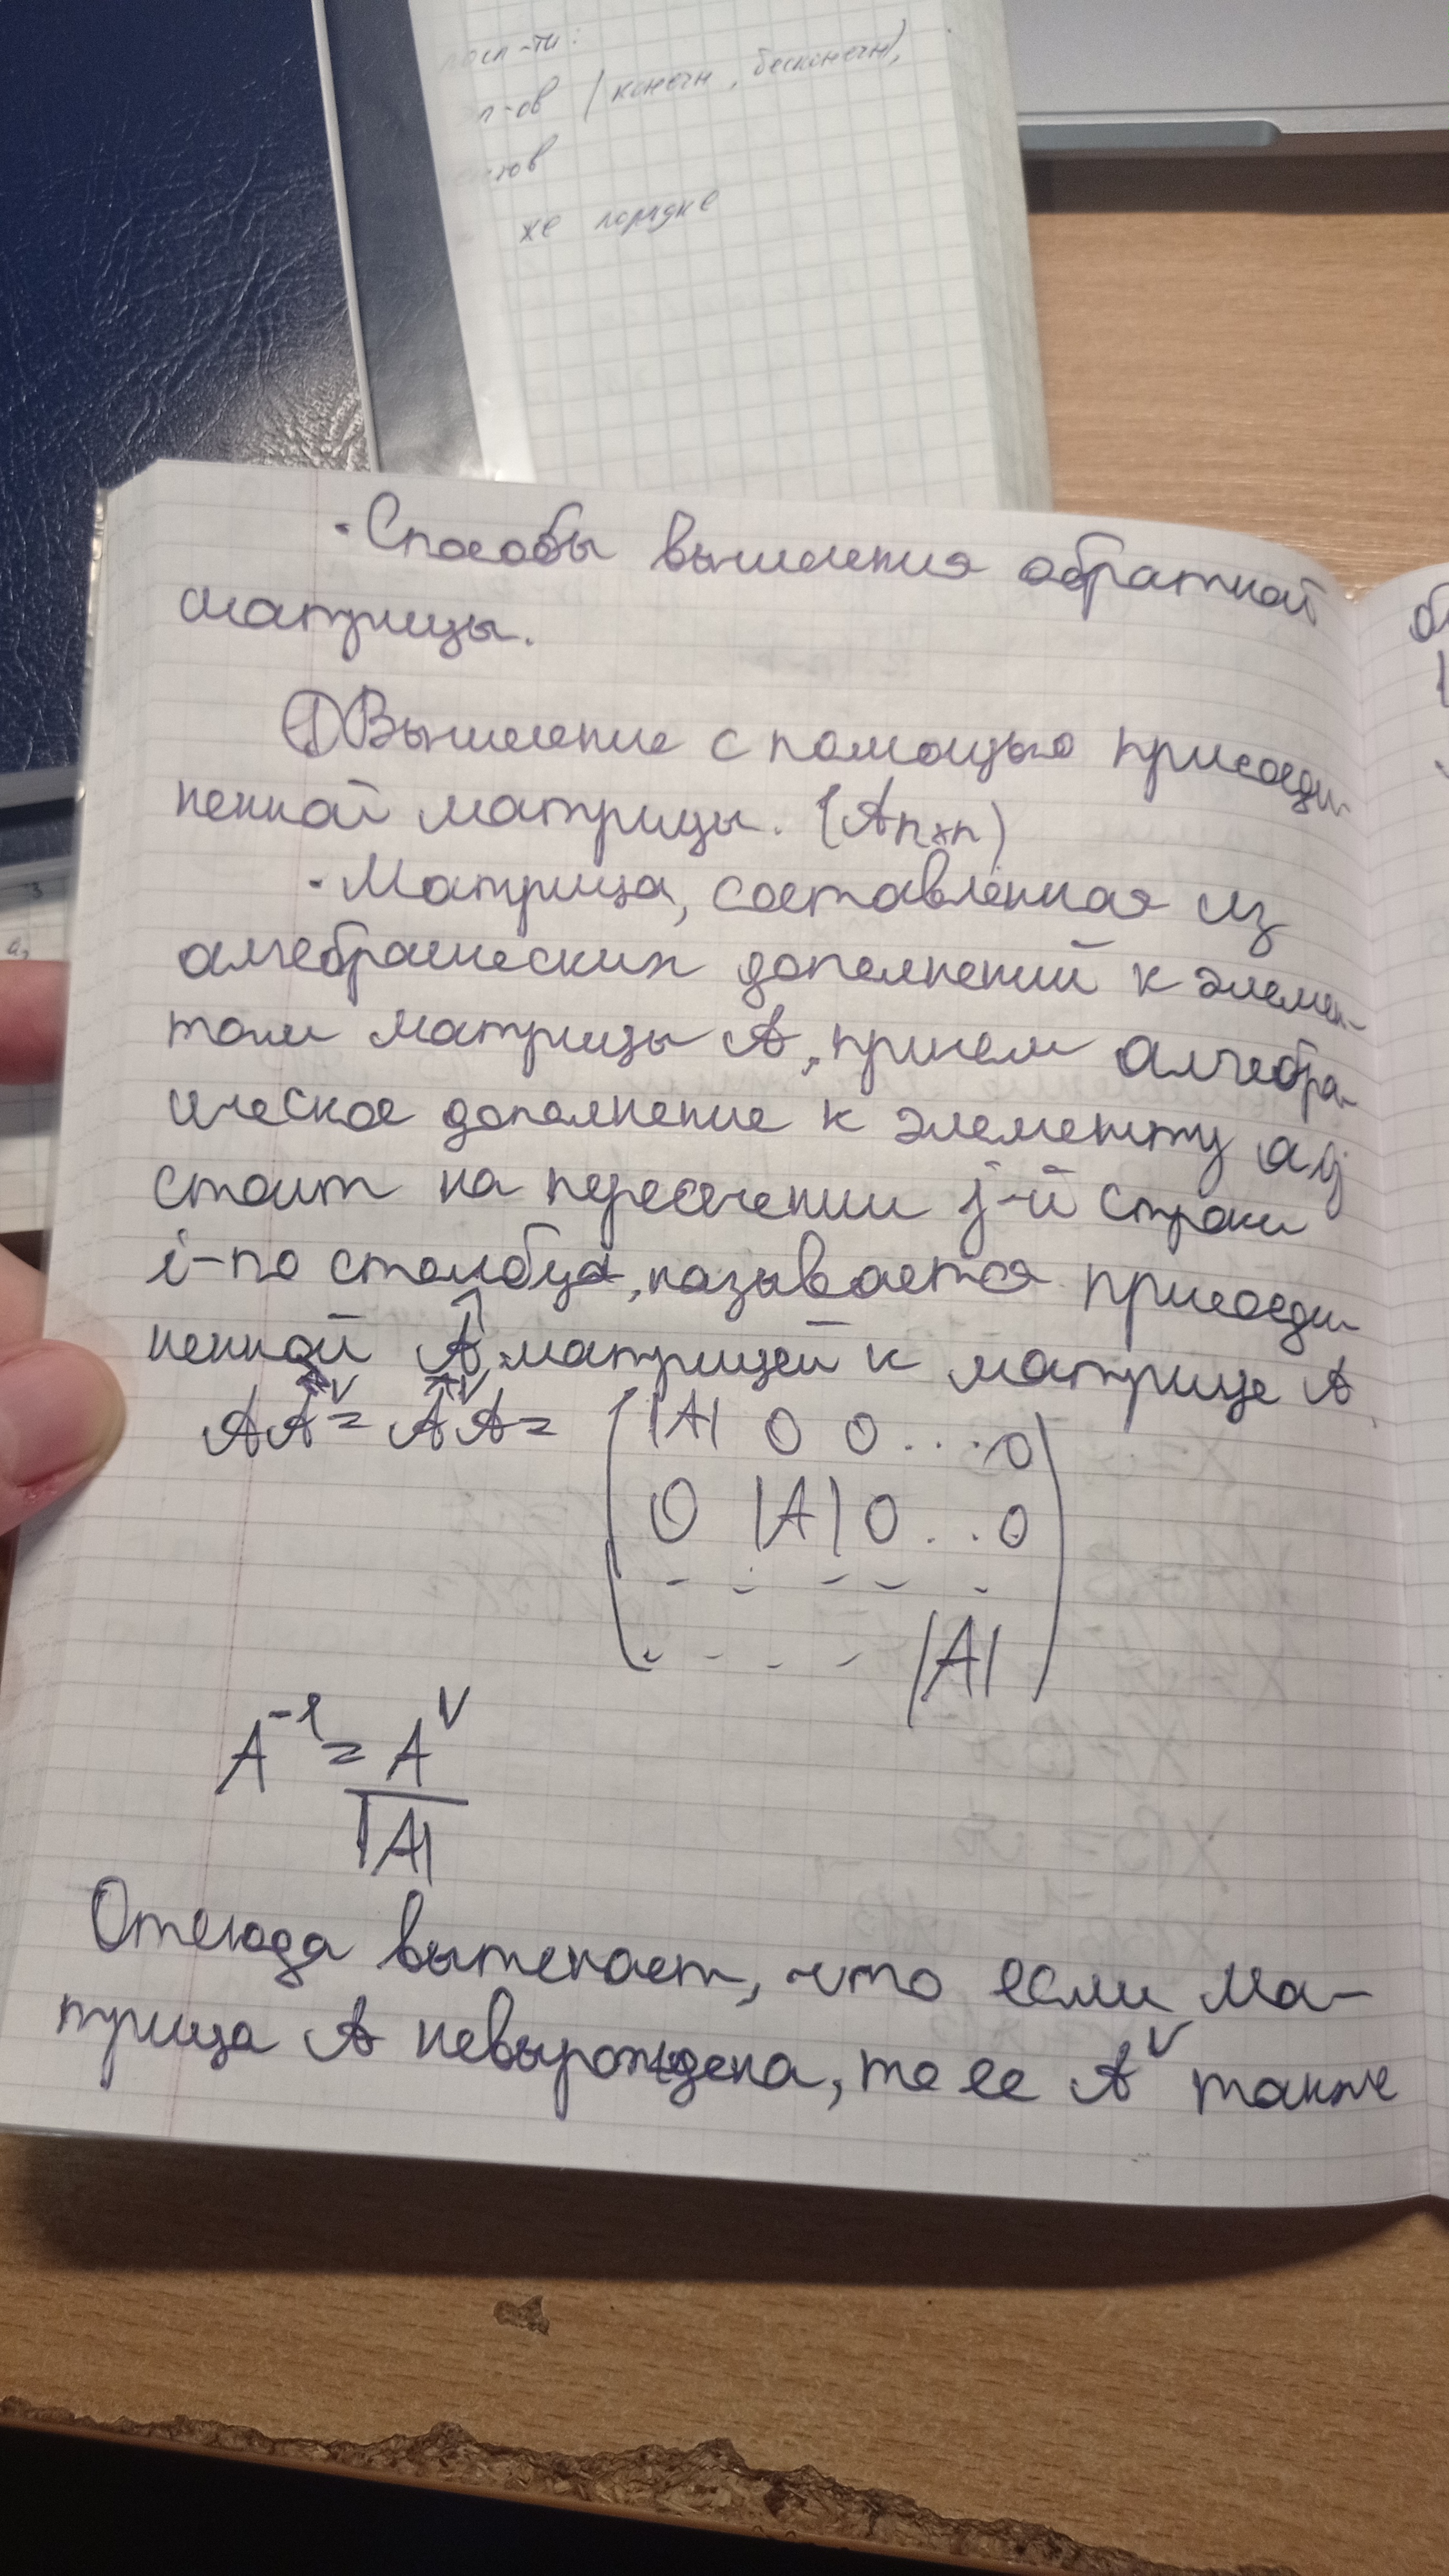 же порядке
(конечн, бесконечн),
· Способы вычисления обратной
матрицы.
① Вычисление с помощью присоеди
ненной матрицы. (Aₙₓₙ)
· Матрица, составленная из
алгебраических дополнений к элемен-
там матрицы A, причем алгебра-
ическое дополнение к элементу aij
стоит на пересечении j-й строки
i-го столбца, называется присоеди
ненной матрицей к матрице A
AAᵛ = AᵛA =
|A| 0 0 . . . . 0
0 |A| 0 . . . 0
. . . . |A|
A⁻¹ = Aᵛ
|A|
Отсюда вытекает, что если ма-
трица A невырождена, то ее Aᵛ также